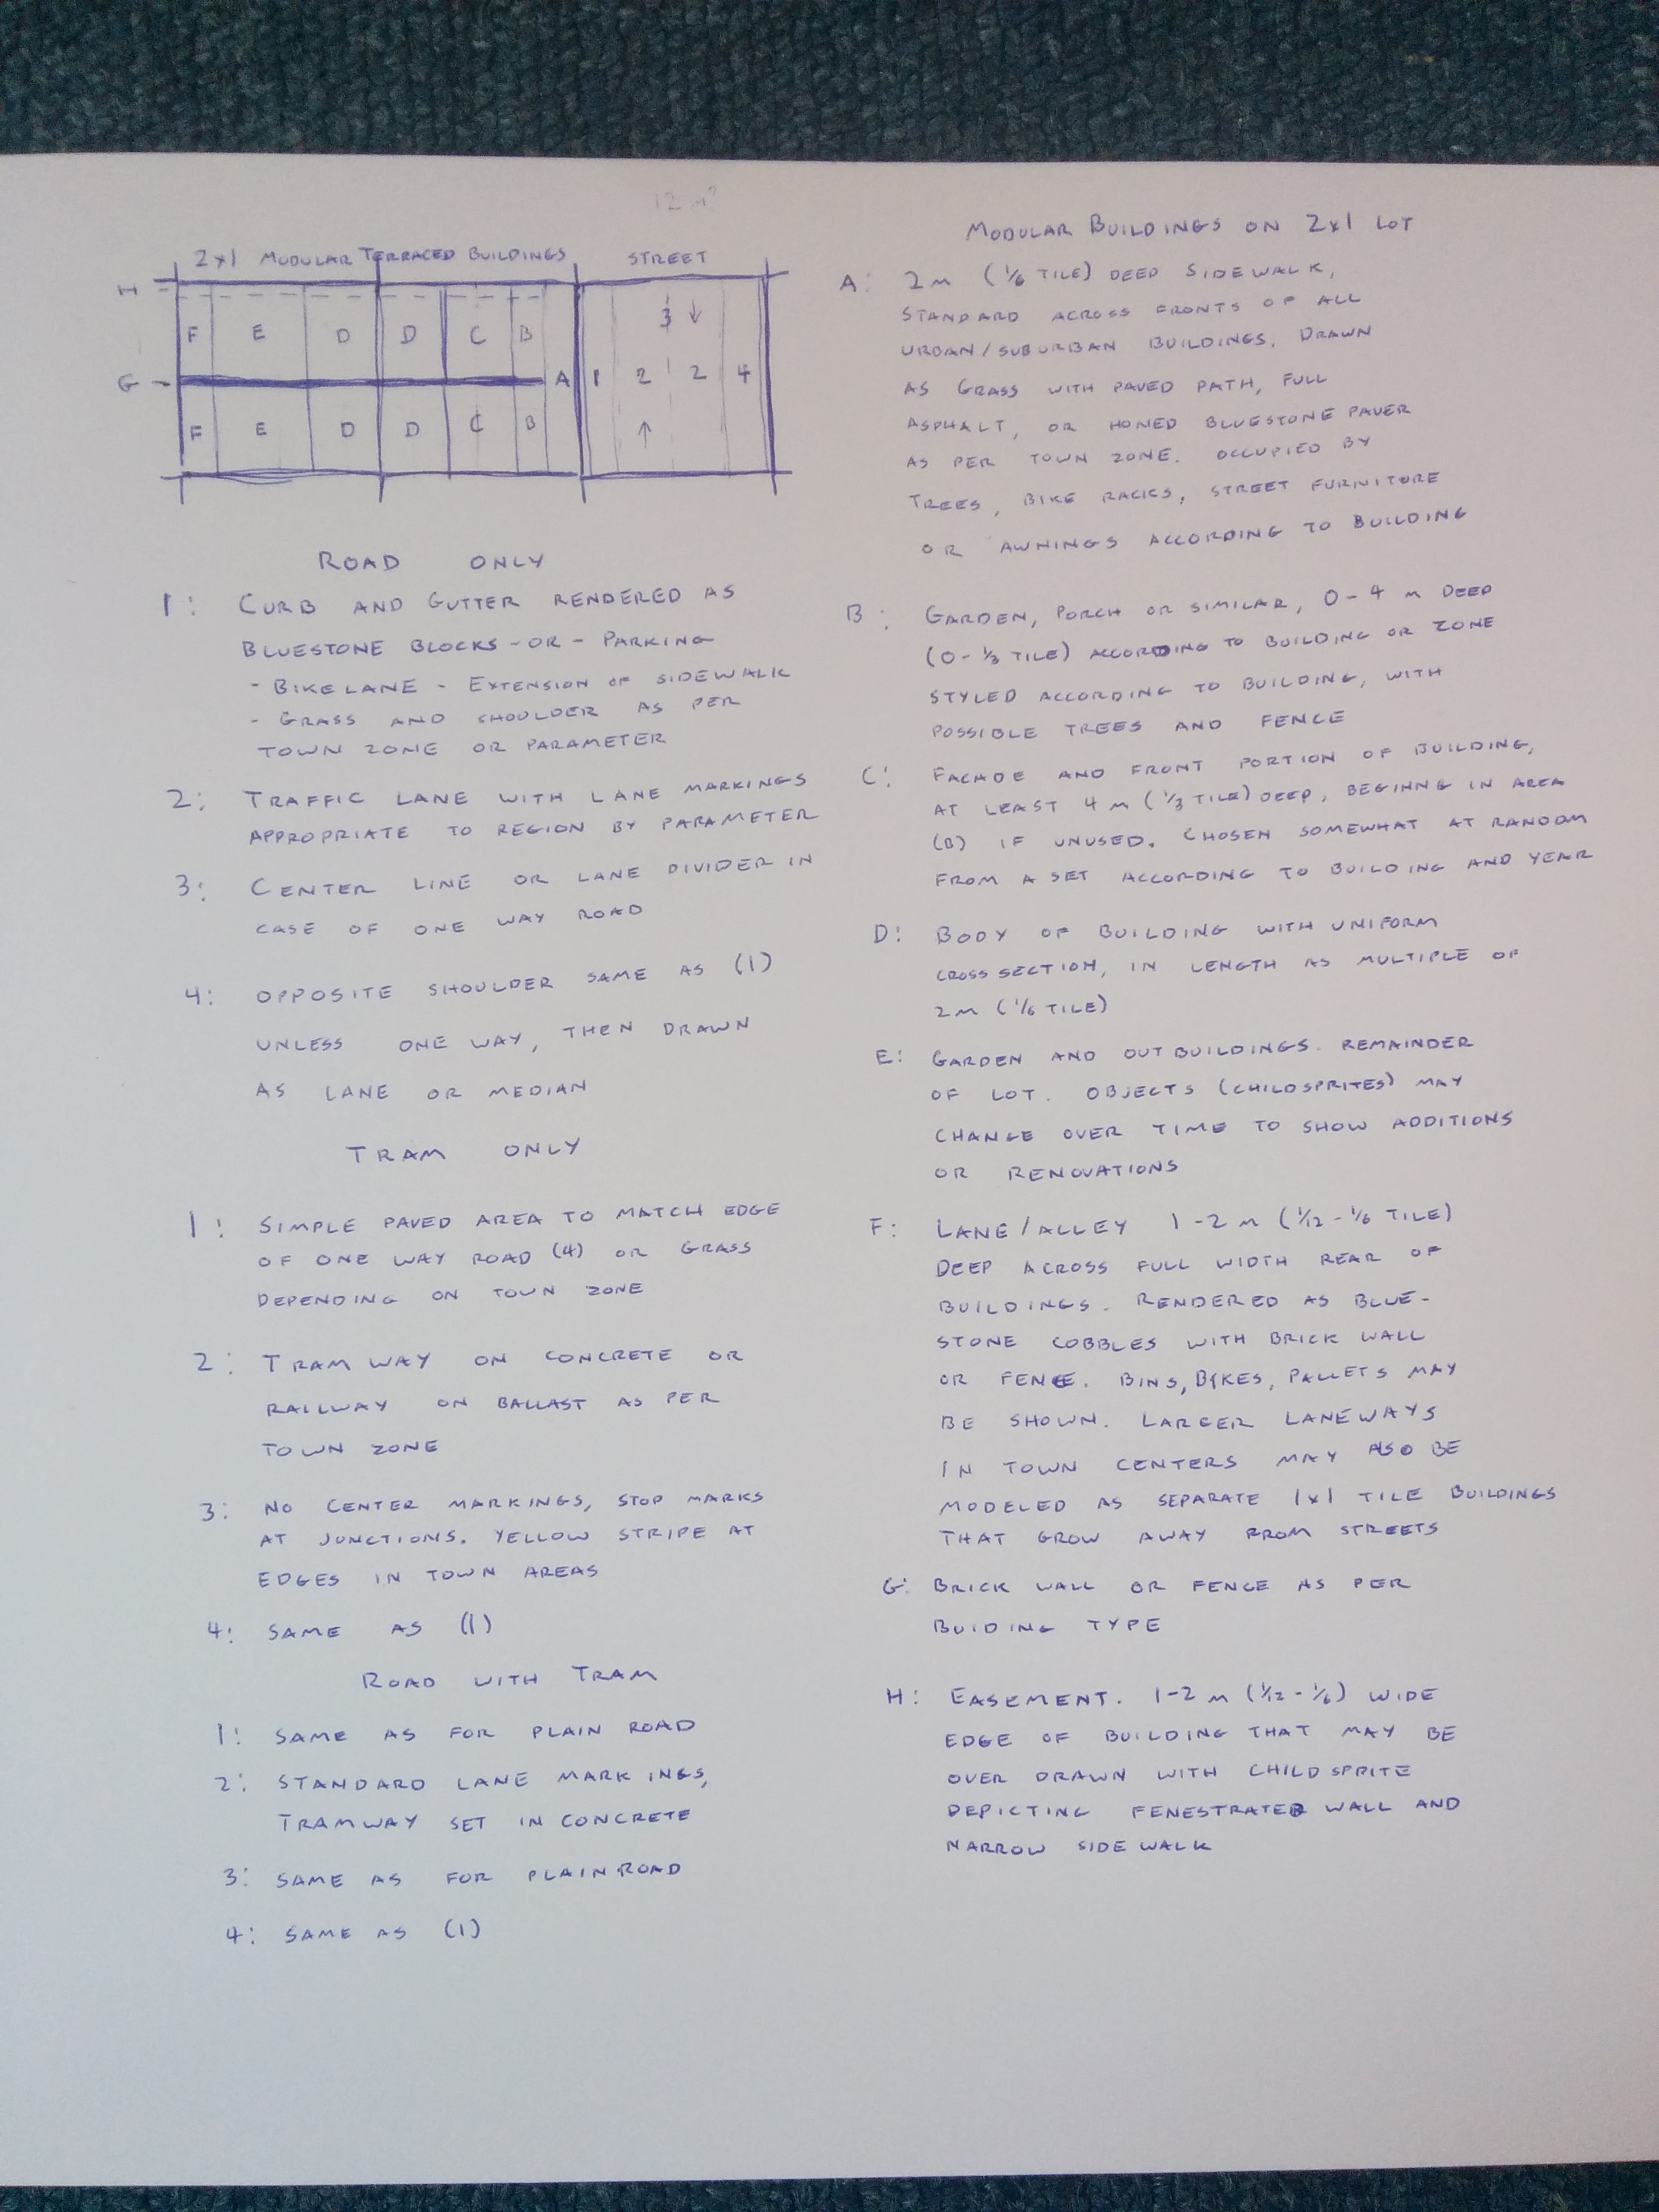 12 m²
2x1 MODULAR TERRACED BUILDINGS STREET
H
F E D D C B 3 ↓
G A 1 2 2 4
F E D D C B ↑
ROAD ONLY
1: CURB AND GUTTER RENDERED AS
BLUESTONE BLOCKS -OR- PARKING
- BIKELANE - EXTENSION OF SIDEWALK
- GRASS AND SHOULDER AS PER
TOWN ZONE OR PARAMETER
2: TRAFFIC LANE WITH LANE MARKINGS
APPROPRIATE TO REGION BY PARAMETER
3: CENTER LINE OR LANE DIVIDER IN
CASE OF ONE WAY ROAD
4: OPPOSITE SHOULDER SAME AS (1)
UNLESS ONE WAY, THEN DRAWN
AS LANE OR MEDIAN
TRAM ONLY
1: SIMPLE PAVED AREA TO MATCH EDGE
OF ONE WAY ROAD (4) OR GRASS
DEPENDING ON TOWN ZONE
2: TRAMWAY ON CONCRETE OR
RAILWAY ON BALLAST AS PER
TOWN ZONE
3: NO CENTER MARKINGS, STOP MARKS
AT JUNCTIONS. YELLOW STRIPE AT
EDGES IN TOWN AREAS
4: SAME AS (1)
ROAD WITH TRAM
1: SAME AS FOR PLAIN ROAD
2: STANDARD LANE MARKINGS,
TRAMWAY SET IN CONCRETE
3: SAME AS FOR PLAIN ROAD
4: SAME AS (1)
MODULAR BUILDINGS ON 2x1 LOT
A: 2m (1/6 TILE) DEEP SIDEWALK,
STANDARD ACROSS FRONTS OF ALL
URBAN/SUBURBAN BUILDINGS, DRAWN
AS GRASS WITH PAVED PATH, FULL
ASPHALT, OR HONED BLUESTONE PAVER
AS PER TOWN ZONE. OCCUPIED BY
TREES, BIKE RACKS, STREET FURNITURE
OR AWNINGS ACCORDING TO BUILDING
B: GARDEN, PORCH OR SIMILAR, 0-4 m DEEP
(0-1/3 TILE) ACCORDING TO BUILDING OR ZONE
STYLED ACCORDING TO BUILDING, WITH
POSSIBLE TREES AND FENCE
C: FACADE AND FRONT PORTION OF BUILDING,
AT LEAST 4 m (1/3 TILE) DEEP, BEGINNG IN AREA
(B) IF UNUSED. CHOSEN SOMEWHAT AT RANDOM
FROM A SET ACCORDING TO BUILDING AND YEAR
D: BODY OF BUILDING WITH UNIFORM
CROSS SECTION, IN LENGTH AS MULTIPLE OF
2m (1/6 TILE)
E: GARDEN AND OUTBUILDINGS. REMAINDER
OF LOT. OBJECTS (CHILDSPRITES) MAY
CHANGE OVER TIME TO SHOW ADDITIONS
OR RENOVATIONS
F: LANE/ALLEY 1-2 m (1/12-1/6 TILE)
DEEP ACROSS FULL WIDTH REAR OF
BUILDINGS. RENDERED AS BLUE-
STONE COBBLES WITH BRICK WALL
OR FENCE. BINS, BIKES, PALLETS MAY
BE SHOWN. LARGER LANEWAYS
IN TOWN CENTERS MAY ALSO BE
MODELED AS SEPARATE 1x1 TILE BUILDINGS
THAT GROW AWAY FROM STREETS
G: BRICK WALL OR FENCE AS PER
BUIDING TYPE
H: EASEMENT. 1-2 m (1/12-1/6) WIDE
EDGE OF BUILDING THAT MAY BE
OVER DRAWN WITH CHILDSPRITE
DEPICTING FENESTRATED WALL AND
NARROW SIDEWALK